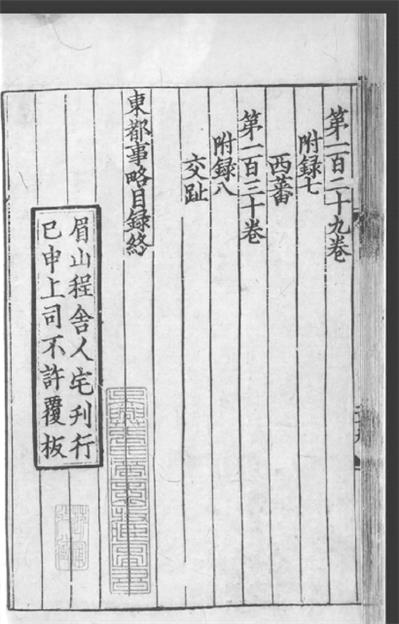 第一百二十九卷
附録七
西蕃
第一百三十卷
附録八
交趾
東都事略目録終
眉山程舍人宅刊行
已申上司不許覆板